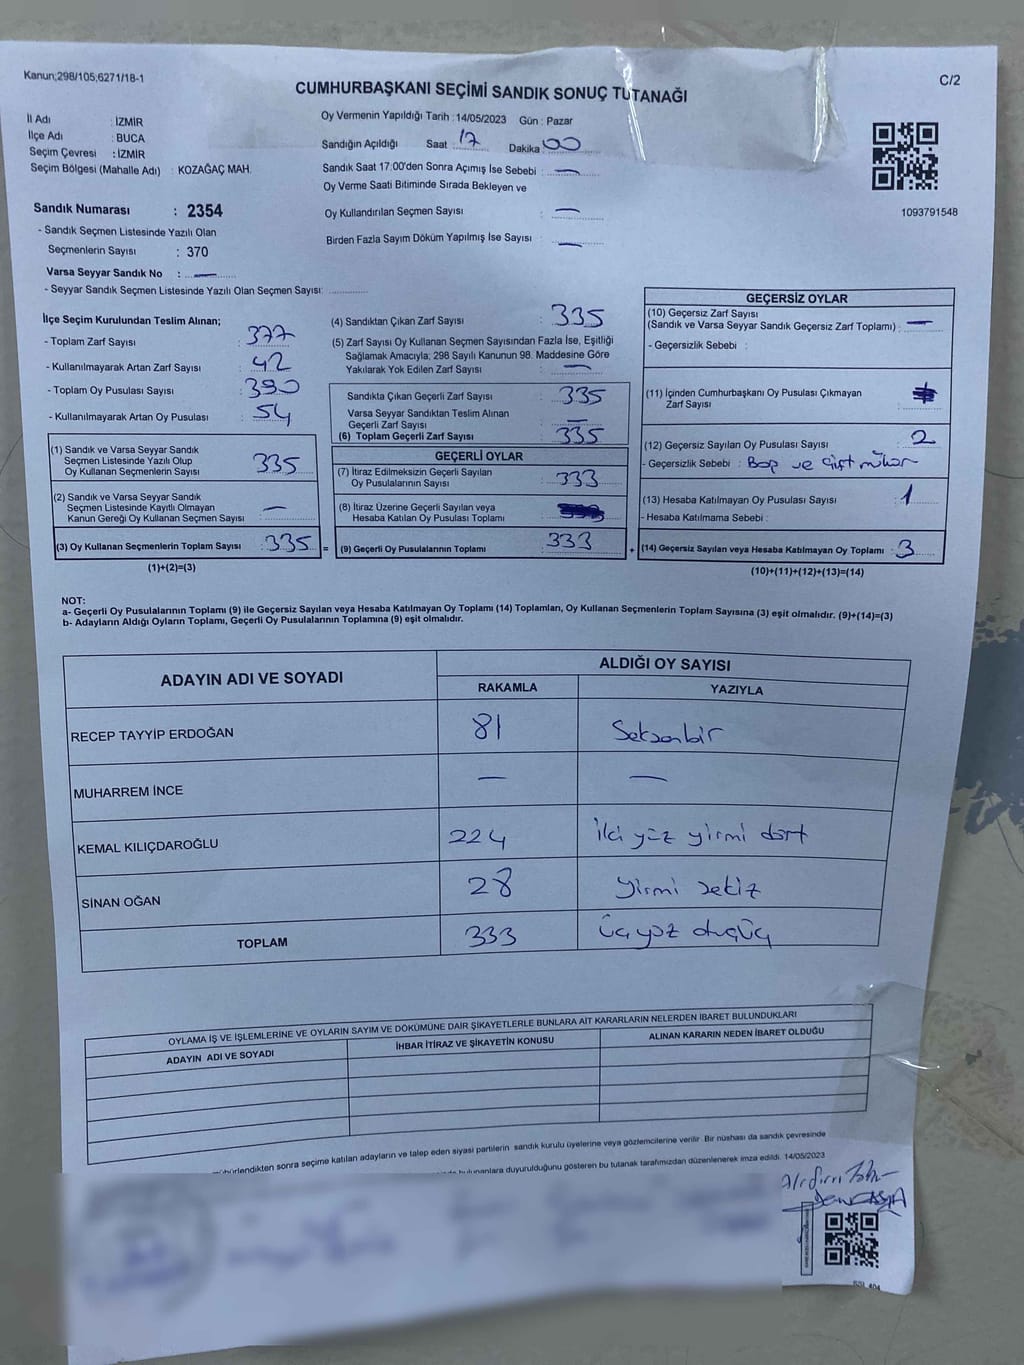 Kanun;298/105;6271/18-1
C/2
CUMHURBAŞKANI SEÇİMİ SANDIK SONUÇ TUTANAĞI
İl Adı : İZMİR
İlçe Adı : BUCA
Seçim Çevresi : İZMİR
Seçim Bölgesi (Mahalle Adı) : KOZAĞAÇ MAH.
Oy Vermenin Yapıldığı Tarih : 14/05/2023 Gün : Pazar
Sandığın Açıldığı Saat : 17 Dakika : 00
Sandık Saat 17:00'den Sonra Açımış İse Sebebi : —
Oy Verme Saati Bitiminde Sırada Bekleyen ve
Oy Kullandırılan Seçmen Sayısı : —
Birden Fazla Sayım Döküm Yapılmış İse Sayısı : —
1093791548
Sandık Numarası : 2354
- Sandık Seçmen Listesinde Yazılı Olan
Seçmenlerin Sayısı : 370
Varsa Seyyar Sandık No : —
- Seyyar Sandık Seçmen Listesinde Yazılı Olan Seçmen Sayısı:
İlçe Seçim Kurulundan Teslim Alınan;
- Toplam Zarf Sayısı : 377
- Kullanılmayarak Artan Zarf Sayısı : 42
- Toplam Oy Pusulası Sayısı : 390
- Kullanılmayarak Artan Oy Pusulası : 54
(1) Sandık ve Varsa Seyyar Sandık
Seçmen Listesinde Yazılı Olup
Oy Kullanan Seçmenlerin Sayısı : 335
(2) Sandık ve Varsa Seyyar Sandık
Seçmen Listesinde Kayıtlı Olmayan
Kanun Gereği Oy Kullanan Seçmen Sayısı : —
(3) Oy Kullanan Seçmenlerin Toplam Sayısı : 335
(1)+(2)=(3)
(4) Sandıktan Çıkan Zarf Sayısı : 335
(5) Zarf Sayısı Oy Kullanan Seçmen Sayısından Fazla İse, Eşitliği
Sağlamak Amacıyla; 298 Sayılı Kanunun 98. Maddesine Göre
Yakılarak Yok Edilen Zarf Sayısı : —
Sandıkta Çıkan Geçerli Zarf Sayısı : 335
Varsa Seyyar Sandıktan Teslim Alınan
Geçerli Zarf Sayısı : —
(6) Toplam Geçerli Zarf Sayısı : 335
GEÇERLİ OYLAR
(7) İtiraz Edilmeksizin Geçerli Sayılan
Oy Pusulalarının Sayısı : 333
(8) İtiraz Üzerine Geçerli Sayılan veya
Hesaba Katılan Oy Pusulası Toplamı :
= (9) Geçerli Oy Pusulalarının Toplamı : 333
GEÇERSİZ OYLAR
(10) Geçersiz Zarf Sayısı
(Sandık ve Varsa Seyyar Sandık Geçersiz Zarf Toplamı) : —
- Geçersizlik Sebebi :
(11) İçinden Cumhurbaşkanı Oy Pusulası Çıkmayan
Zarf Sayısı :
(12) Geçersiz Sayılan Oy Pusulası Sayısı : 2
- Geçersizlik Sebebi : Boş ve çift mühür
(13) Hesaba Katılmayan Oy Pusulası Sayısı : 1
- Hesaba Katılmama Sebebi :
+ (14) Geçersiz Sayılan veya Hesaba Katılmayan Oy Toplamı : 3
(10)+(11)+(12)+(13)=(14)
NOT:
a- Geçerli Oy Pusulalarının Toplamı (9) ile Geçersiz Sayılan veya Hesaba Katılmayan Oy Toplamı (14) Toplamları, Oy Kullanan Seçmenlerin Toplam Sayısına (3) eşit olmalıdır. (9)+(14)=(3)
b- Adayların Aldığı Oyların Toplamı, Geçerli Oy Pusulalarının Toplamına (9) eşit olmalıdır.
ADAYIN ADI VE SOYADI
ALDIĞI OY SAYISI
RAKAMLA YAZIYLA
RECEP TAYYİP ERDOĞAN 81 Seksenbir
MUHARREM İNCE — —
KEMAL KILIÇDAROĞLU 224 iki yüz yirmi dört
SİNAN OĞAN 28 yirmi sekiz
TOPLAM 333 üçyüz otuzüç
OYLAMA İŞ VE İŞLEMLERİNE VE OYLARIN SAYIM VE DÖKÜMÜNE DAİR ŞİKAYETLERLE BUNLARA AİT KARARLARIN NELERDEN İBARET BULUNDUKLARI
ADAYIN ADI VE SOYADI İHBAR İTİRAZ VE ŞİKAYETİN KONUSU ALINAN KARARIN NEDEN İBARET OLDUĞU
sonra seçime katılan adayların ve talep eden siyasi partilerin sandık kurulu üyelerine veya gözlemcilerine verilir. Bir nüshası da sandık çevresinde
bulunanlara duyurulduğunu gösteren bu tutanak tarafımızdan düzenlenerek imza edildi. 14/05/2023